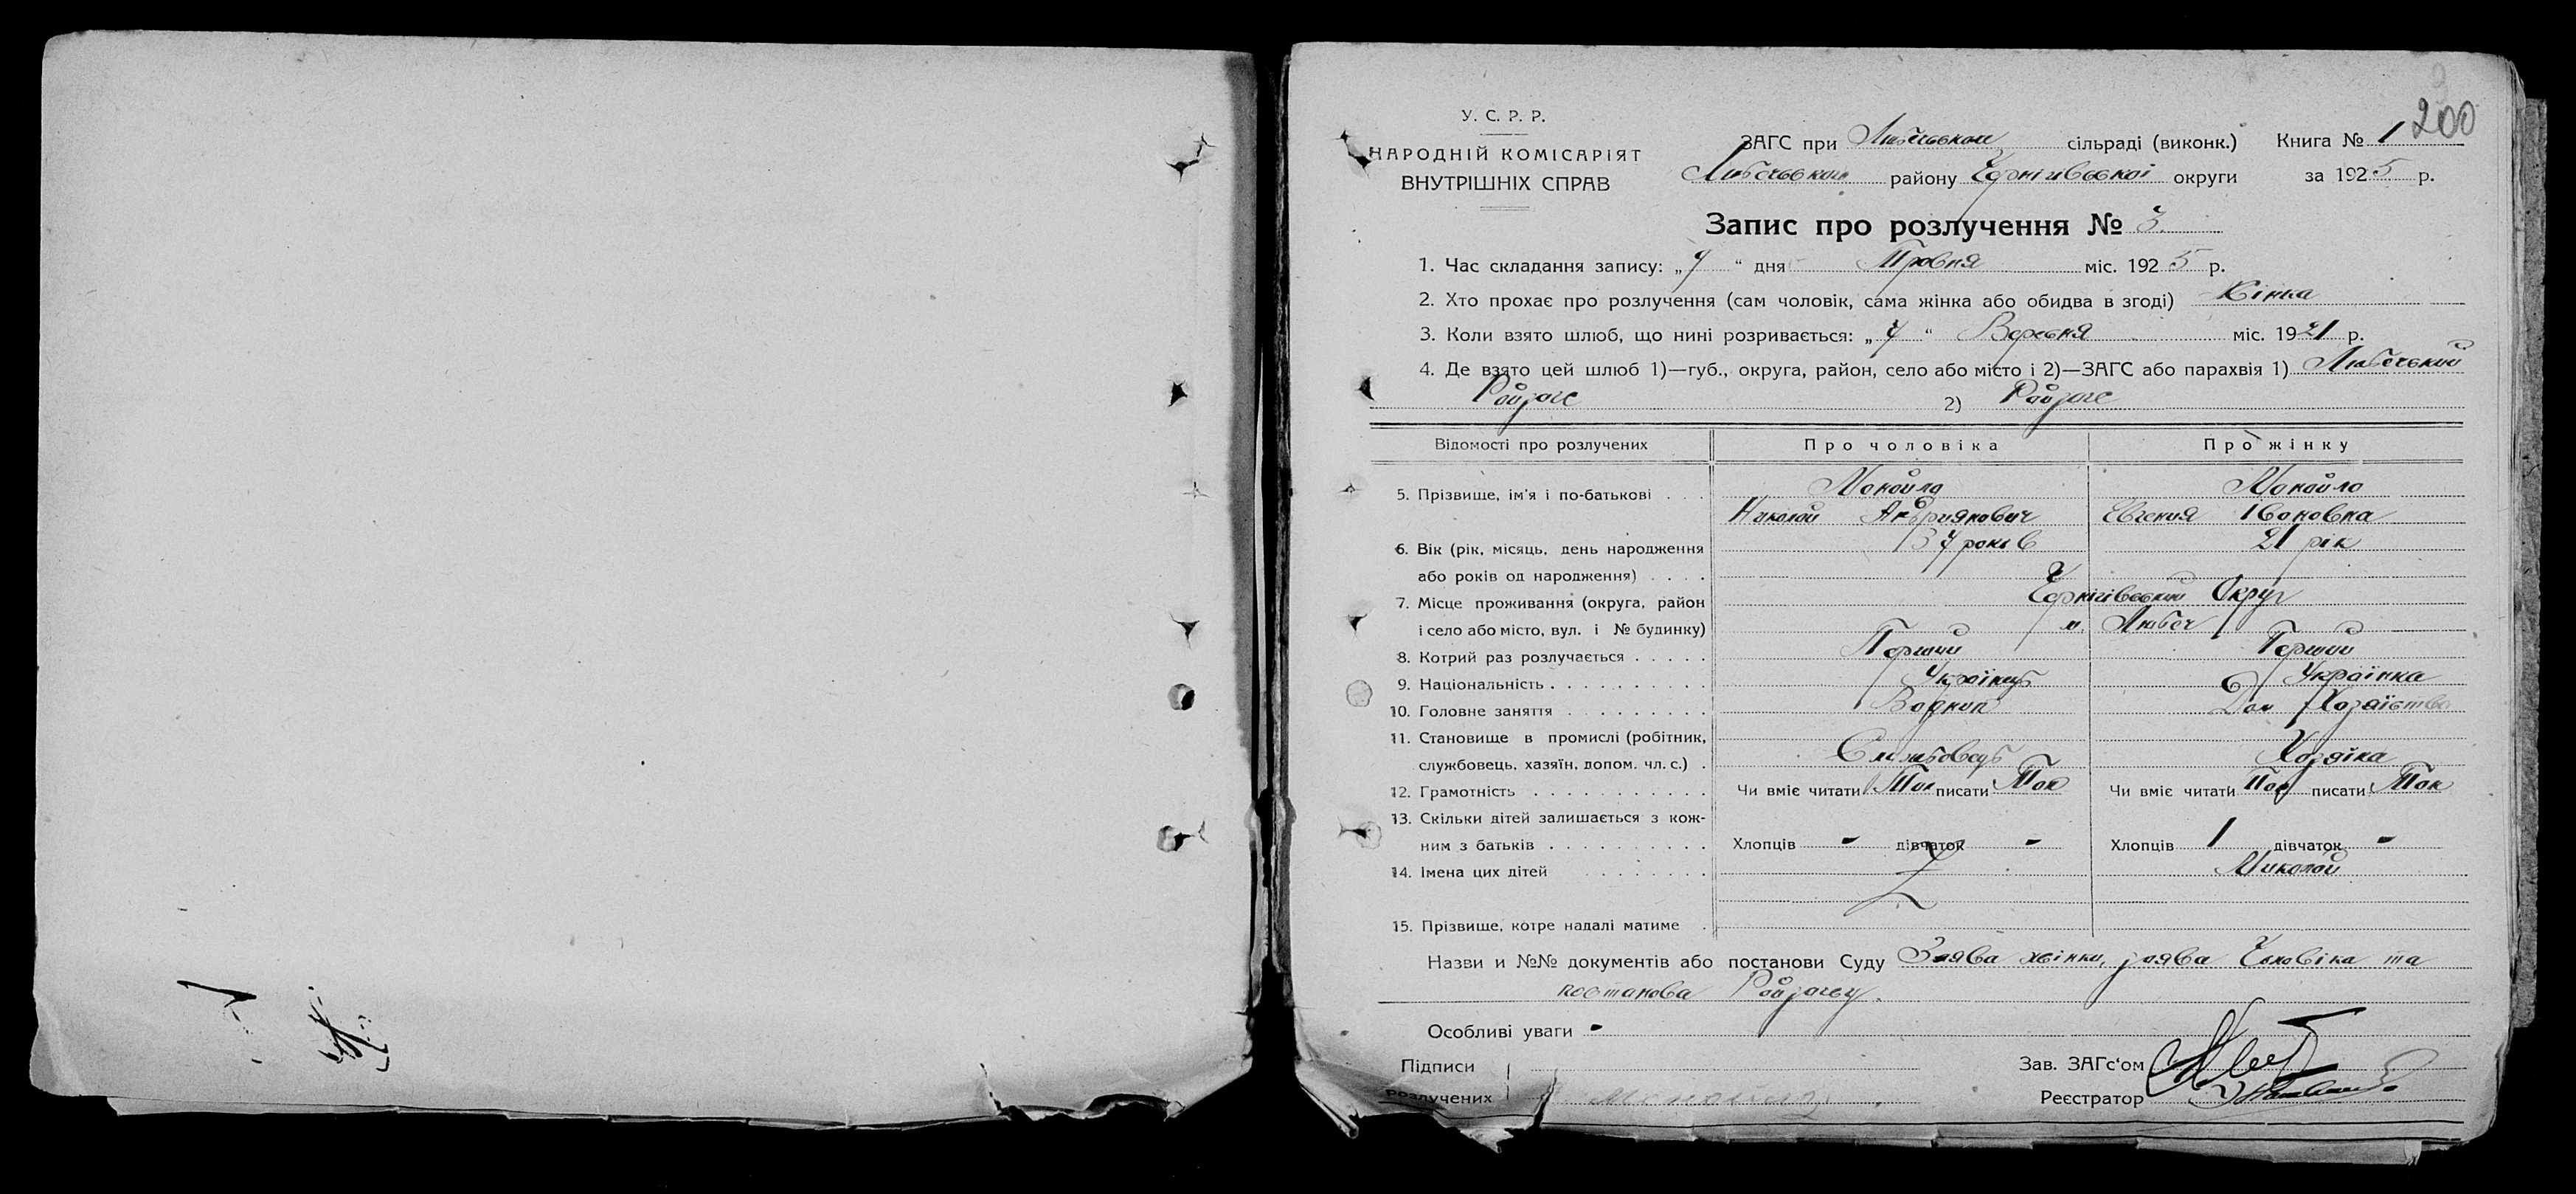 200
У. С. Р. Р.
НАРОДНІЙ КОМІСАРІЯТ
ВНУТРІШНІХ СПРАВ
ЗАГС при Любечськом сільраді (виконк.) Книга № 1
Любечськом району Чернігивської округи за 1925 р.
Запис про розлучення № 3
1. Час складання запису: „7“ дня Травня міс. 1925 р.
2. Хто прохає про розлучення (сам чоловік, сама жінка або обидва в згоді) Жінка
3. Коли взято шлюб, що нині розривається: „7“ Вересня міс. 1921 р.
4. Де взято цей шлюб 1)—губ., округа, район, село або місто і 2)—ЗАГС або парахвія 1) Любечський
Райзагс 2) Райзагс
Відомості про розлучених Про чоловіка Про жінку
5. Прізвище, ім'я і по-батькові Мокойло Мокойло
Николай Андриянович Евгения Івоновна
6. Вік (рік, місяць, день народження 37 років 21 рік
або років од народження)
7. Місце проживання (округа, район Чернігівський Округ
і село або місто, вул. і № будинку) м. Любеч
8. Котрий раз розлучається Перший Перший
9. Національність Українець Українка
10. Головне заняття Дом Хозяїство
11. Становище в промислі (робітник,
службовець, хазяїн, допом. чл. с.) Службовець Хозяїка
12. Грамотність Чи вміє читати Так писати Так Чи вміє читати Так писати Так
13. Скільки дітей залишається з кож-
ним з батьків Хлопців - дівчаток - Хлопців 1 дівчаток -
14. Імена цих дітей Миколай
15. Прізвище, котре надалі матиме
Назви и №№ документів або постанови Суду Заява жінки, заява Чоловіка та
постанова Райзагсу.
Особливі уваги -
Підписи Зав. ЗАГс'ом
Розлучених Реєстратор